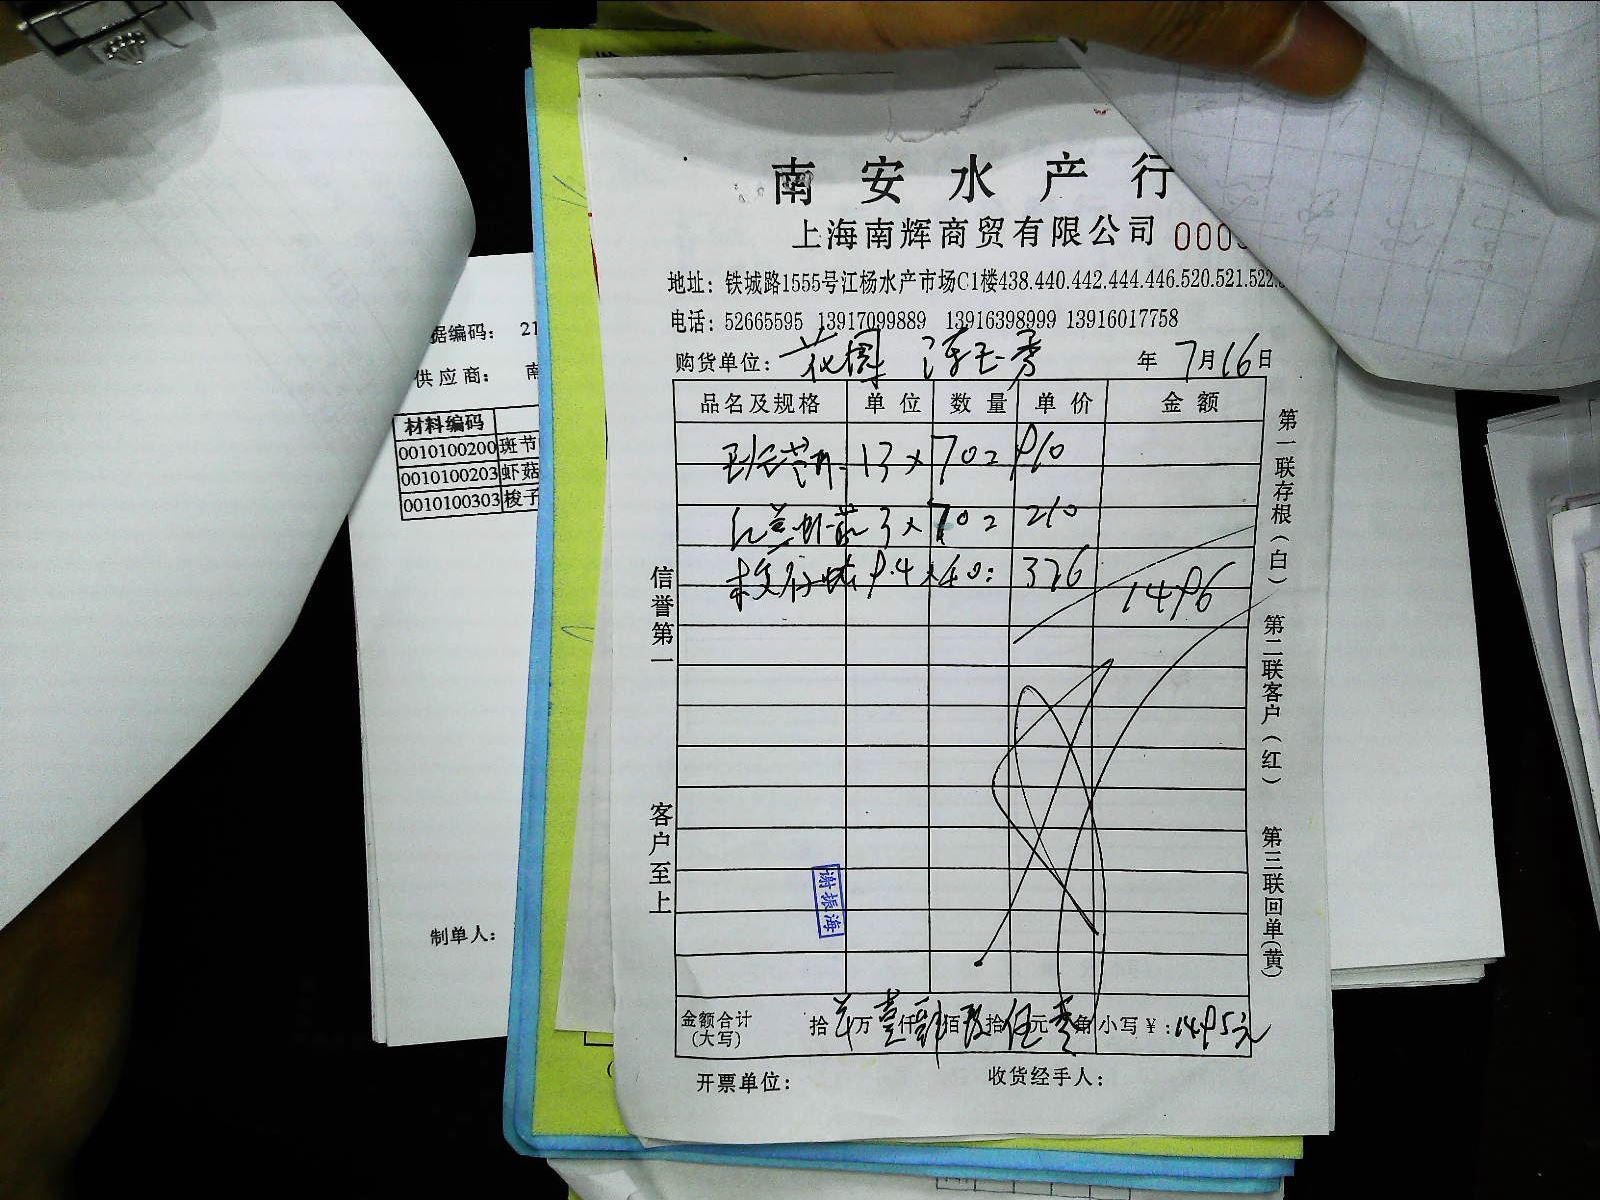 南安水产行
上海南辉商贸有限公司 000
地址：铁城路1555号江杨水产市场C1楼438.440.442.444.446.520.521.522
电话：52665595 13917099889 13916398999 13916017758
购货单位：花園 年 7月16日
品名及规格 单位 数量 单价 金额
斑节 13 × 70 = 910
红兰虾菇 3 × 70 = 210
梭子 9.4 × 40 = 376 1496
信誉第一
客户至上
谢振海
金额合计(大写) 拾 万壹仟 佰 拾伍元零角 小写￥：1495元
开票单位： 收货经手人：
第一联存根(白) 第二联客户(红) 第三联回单(黄)
据编码： 21
供应商： 南
材料编码
0010100200 斑节
0010100203 虾菇
0010100303 梭子
制单人：